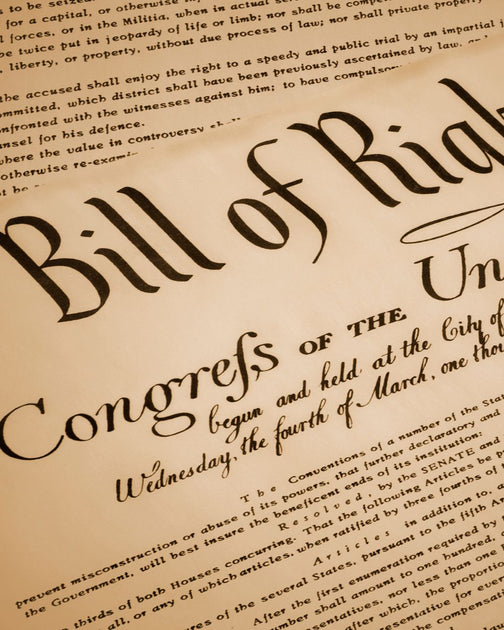 to be seized.
for a capital, or otherwise in
l forces, or in the Militia, when in actual ser
be twice put in jeopardy of life or limb; nor shall be compe
, liberty, or property, without due process of law; nor shall private property
the accused shall enjoy the right to a speedy and public trial by an impartial j
ommitted, which district shall have been previously ascertained by law, and
nfronted with the witnesses against him; to have compulsory
unsel for his defence.
where the value in controversy shall
otherwise re-examin
t be
Bill of Righ
Congreſs OF THE Un
begun and held at the City of
Wednesday, the fourth of March, one thou
The Conventions of a number of the Stat
prevent misconstruction or abuse of its powers, that further declaratory and
the Government, will best insure the beneficent ends of its institution:
Resolved, by the SENATE and
thirds of both Houses concurring. That the following Articles be p
all, or any of which articles, when ratified by three fourths of
Articles in addition to, a
res of the several States, pursuant to the fifth Ar
After the first enumeration required by
mber shall amount to one hundred,
ntatives, nor less than one
after which, the proportio
esentative for ever
the compensa